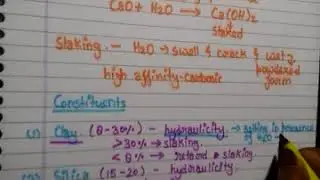 CaO + H₂O → Ca(OH)₂
slaked
Slaking. - H₂O → swell & crack &
powdered
high affinity-carbonic form
Constituents
(1) Clay (8-30%) - hydraulicity → setting in presence
of H₂O
>30% → slaking.
< 8% → retard slaking.
(2) Silica (15-20) - hydraulicity.